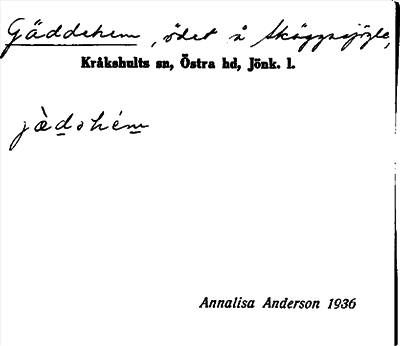 Gäddehem, ödet å Skäggsnäs,
Kråkshults sn, Östra hd, Jönk. l.
jàdəhém
Annalisa Anderson 1936